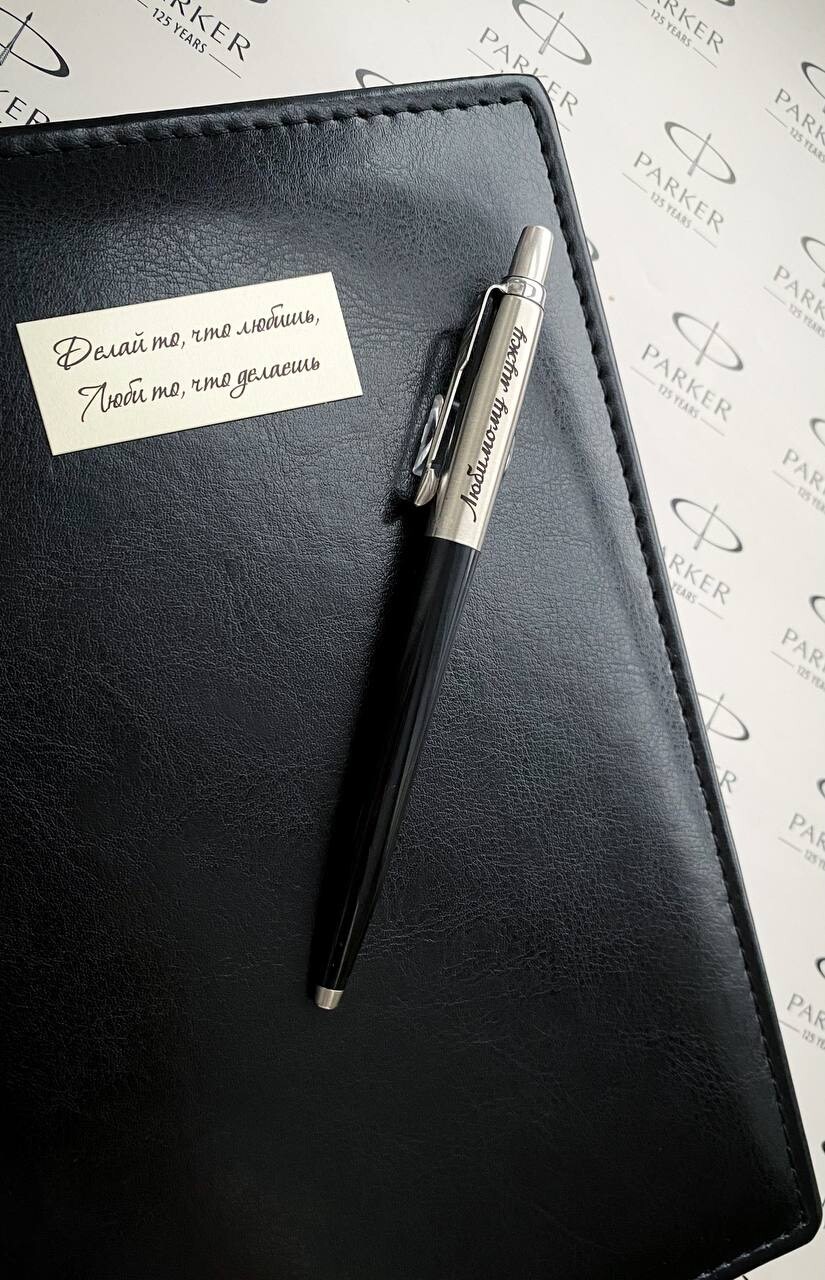 PARKER
125 YEARS
PARKER
125 YEARS
PARKER
125 YEARS
PARKER
125 YEARS
PARKER
125 YEARS
Делай то, что любишь,
Люби то, что делаешь
Любимому мужу
PARKER
125 YEARS
PARKER
YEARS